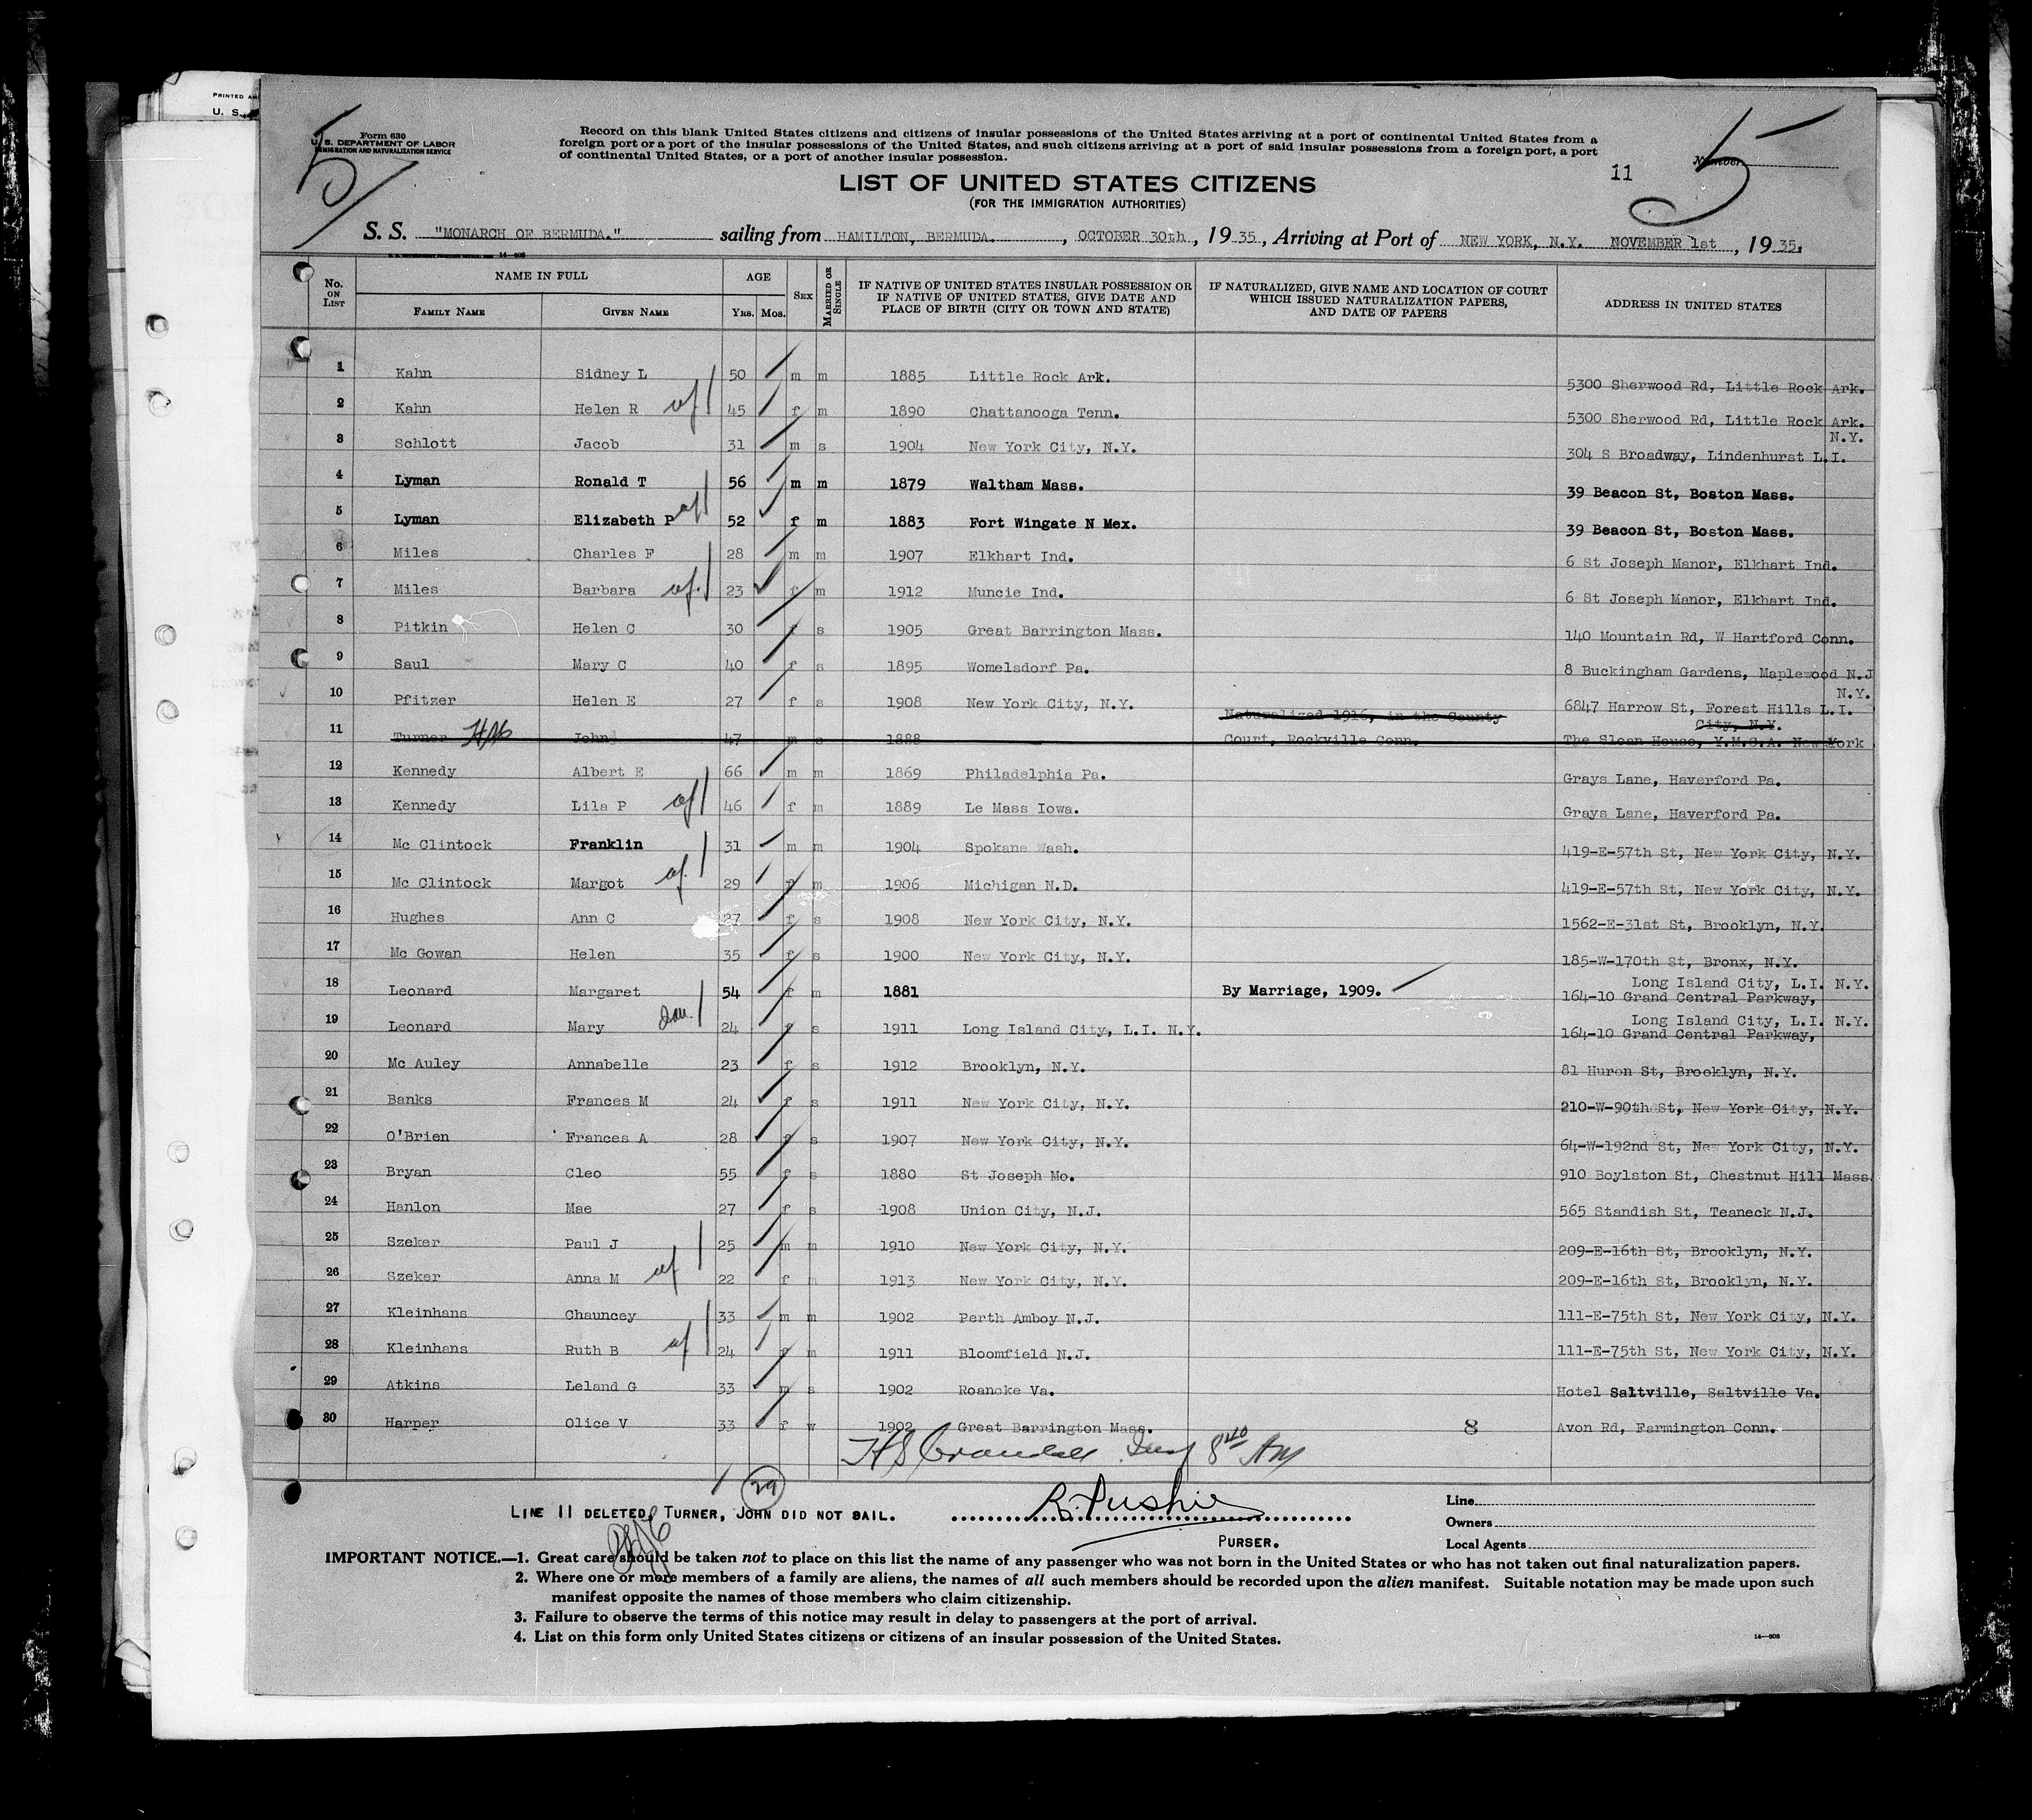 PRINTED AN
U. S.
5
Form 630
U. S. DEPARTMENT OF LABOR
IMMIGRATION AND NATURALIZATION SERVICE
Record on this blank United States citizens and citizens of insular possessions of the United States arriving at a port of continental United States from a
foreign port or a port of the insular possessions of the United States, and such citizens arriving at a port of said insular possessions from a foreign port, a port
of continental United States, or a port of another insular possession.
11 Number 5
LIST OF UNITED STATES CITIZENS
(FOR THE IMMIGRATION AUTHORITIES)
S. S. "MONARCH OF BERMUDA." sailing from HAMILTON, BERMUDA. , OCTOBER 30th , 19 35 , Arriving at Port of NEW YORK, N.Y. NOVEMBER 1st , 19 35.
No. ON LIST NAME IN FULL AGE SEX MARRIED OR SINGLE IF NATIVE OF UNITED STATES INSULAR POSSESSION OR IF NATIVE OF UNITED STATES, GIVE DATE AND PLACE OF BIRTH (CITY OR TOWN AND STATE) IF NATURALIZED, GIVE NAME AND LOCATION OF COURT WHICH ISSUED NATURALIZATION PAPERS, AND DATE OF PAPERS ADDRESS IN UNITED STATES
FAMILY NAME GIVEN NAME YRS. MOS.
1 Kahn Sidney L 50 m m 1885 Little Rock Ark. 5300 Sherwood Rd, Little Rock Ark.
2 Kahn Helen R 45 f m 1890 Chattanooga Tenn. 5300 Sherwood Rd, Little Rock Ark.
3 Schlott Jacob 31 m s 1904 New York City, N.Y. 304 S Broadway, Lindenhurst L.I. N.Y.
4 Lyman Ronald T 56 m m 1879 Waltham Mass. 39 Beacon St, Boston Mass.
5 Lyman Elizabeth P 52 f m 1883 Fort Wingate N Mex. 39 Beacon St, Boston Mass.
6 Miles Charles F 28 m m 1907 Elkhart Ind. 6 St Joseph Manor, Elkhart Ind.
7 Miles Barbara 23 f m 1912 Muncie Ind. 6 St Joseph Manor, Elkhart Ind.
8 Pitkin Helen C 30 f s 1905 Great Barrington Mass. 140 Mountain Rd, W Hartford Conn.
9 Saul Mary C 40 f s 1895 Womelsdorf Pa. 8 Buckingham Gardens, Maplewood N.J
10 Pfitzer Helen E 27 f s 1908 New York City, N.Y. 6847 Harrow St, Forest Hills L.I. N.Y.
11 Turner John 47 m s 1888 Naturalized 1916, in the County Court, Rockville Conn. The Sloan House, Y.M.C.A. New York City, N.Y.
12 Kennedy Albert E 66 m m 1869 Philadelphia Pa. Grays Lane, Haverford Pa.
13 Kennedy Lila P 46 f m 1889 Le Mass Iowa. Grays Lane, Haverford Pa.
14 Mc Clintock Franklin 31 m m 1904 Spokane Wash. 419-E-57th St, New York City, N.Y.
15 Mc Clintock Margot 29 f m 1906 Michigan N.D. 419-E-57th St, New York City, N.Y.
16 Hughes Ann C 27 f s 1908 New York City, N.Y. 1562-E-31st St, Brooklyn, N.Y.
17 Mc Gowan Helen 35 f s 1900 New York City, N.Y. 185-W-170th St, Bronx, N.Y.
18 Leonard Margaret 54 f m 1881 By Marriage, 1909. 164-10 Grand Central Parkway, Long Island City, L.I. N.Y.
19 Leonard Mary 24 f s 1911 Long Island City, L.I. N.Y. 164-10 Grand Central Parkway, Long Island City, L.I. N.Y.
20 Mc Auley Annabelle 23 f s 1912 Brooklyn, N.Y. 81 Huron St, Brooklyn, N.Y.
21 Banks Frances M 24 f s 1911 New York City, N.Y. 210-W-90th St, New York City, N.Y.
22 O'Brien Frances A 28 f s 1907 New York City, N.Y. 64-W-192nd St, New York City, N.Y.
23 Bryan Cleo 55 f s 1880 St Joseph Mo. 910 Boylston St, Chestnut Hill Mass
24 Hanlon Mae 27 f s 1908 Union City, N.J. 565 Standish St, Teaneck N.J.
25 Szeker Paul J 25 m m 1910 New York City, N.Y. 209-E-16th St, Brooklyn, N.Y.
26 Szeker Anna M 22 f m 1913 New York City, N.Y. 209-E-16th St, Brooklyn, N.Y.
27 Kleinhans Chauncey 33 m m 1902 Perth Amboy N.J. 111-E-75th St, New York City, N.Y.
28 Kleinhans Ruth B 24 f m 1911 Bloomfield N.J. 111-E-75th St, New York City, N.Y.
29 Atkins Leland G 33 m s 1902 Roanoke Va. Hotel Saltville, Saltville Va.
30 Harper Olice V 33 f w 1902 Great Barrington Mass. 8 Avon Rd, Farmington Conn.
H S Crandall Insp 8 40 AM
29
LINE 11 DELETED, TURNER, JOHN DID NOT SAIL. R. Pushie
PURSER.
Line
Owners
Local Agents
IMPORTANT NOTICE.—1. Great care should be taken not to place on this list the name of any passenger who was not born in the United States or who has not taken out final naturalization papers.
2. Where one or more members of a family are aliens, the names of all such members should be recorded upon the alien manifest. Suitable notation may be made upon such
manifest opposite the names of those members who claim citizenship.
3. Failure to observe the terms of this notice may result in delay to passengers at the port of arrival.
4. List on this form only United States citizens or citizens of an insular possession of the United States.
14—608